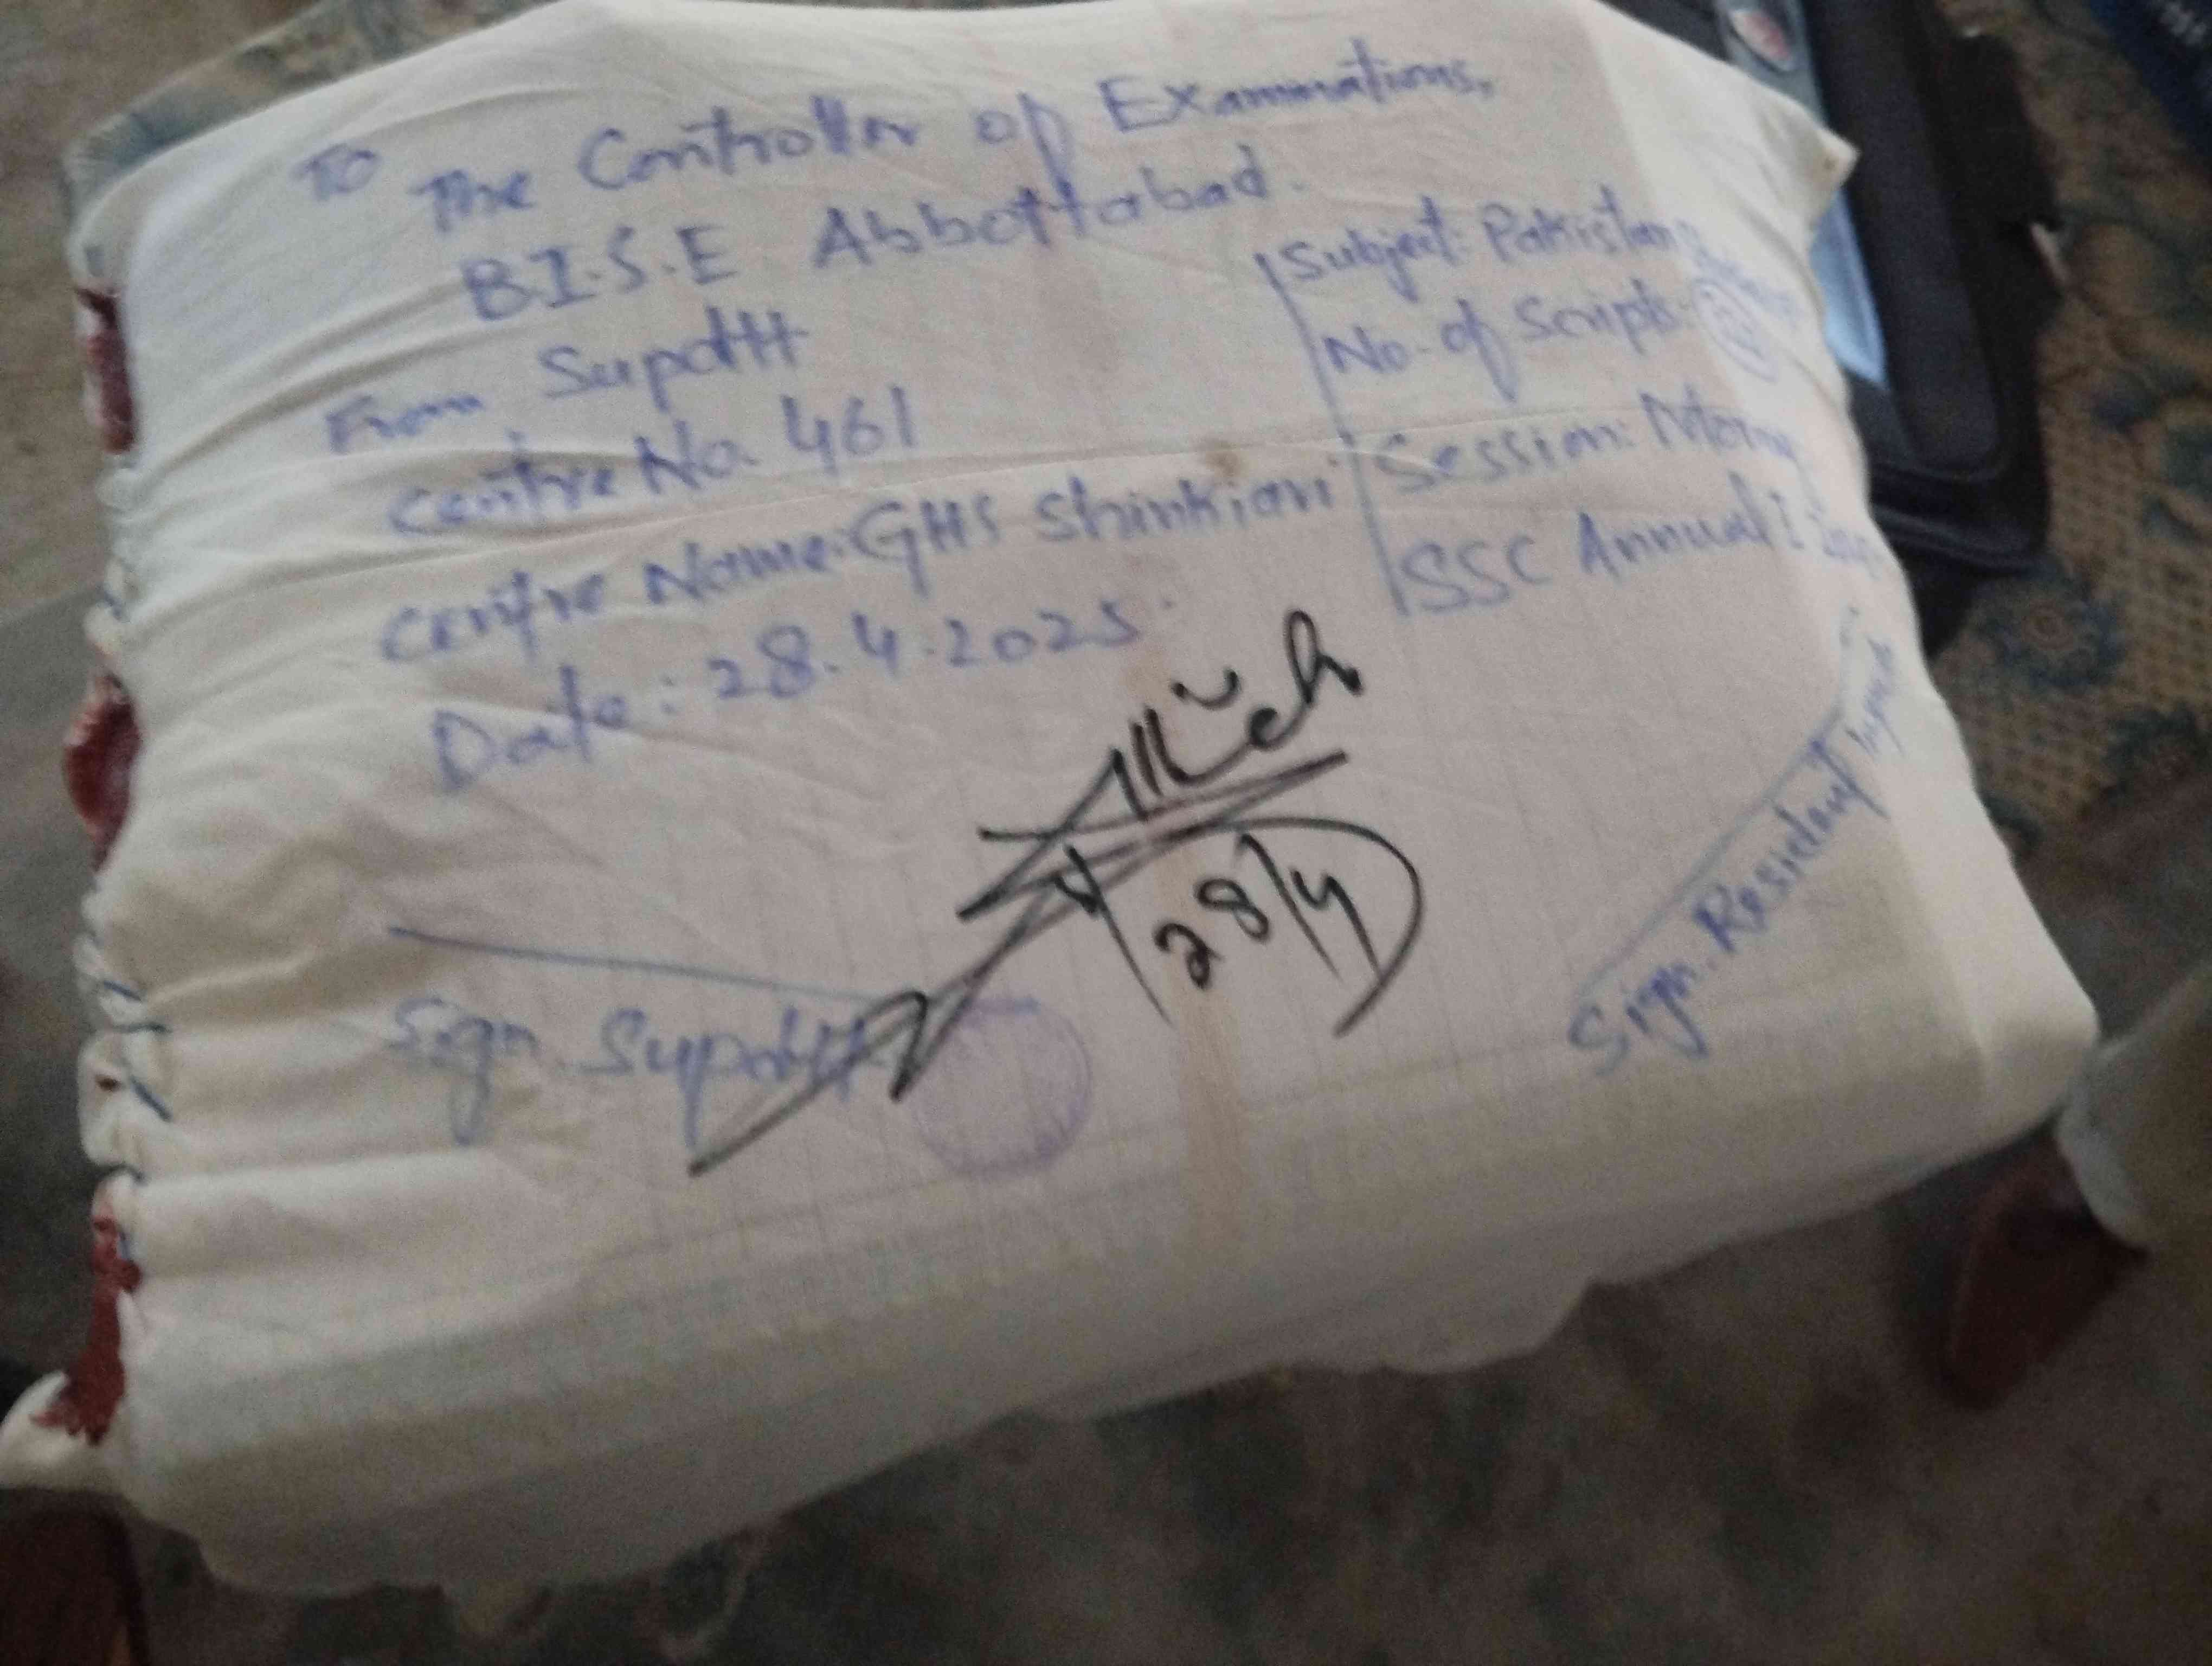 To
The Controller of Examinations,
B.I.S.E Abbottabad.
From Supdtt
Centre No. 461
Centre Name: GHS Shinkiari
Date: 28.4.2025
Subject: Pakistan
No. of Scripts:
Session: Morning
SSC Annual I
28/4
Sign. Supdtt
Sign. Resident